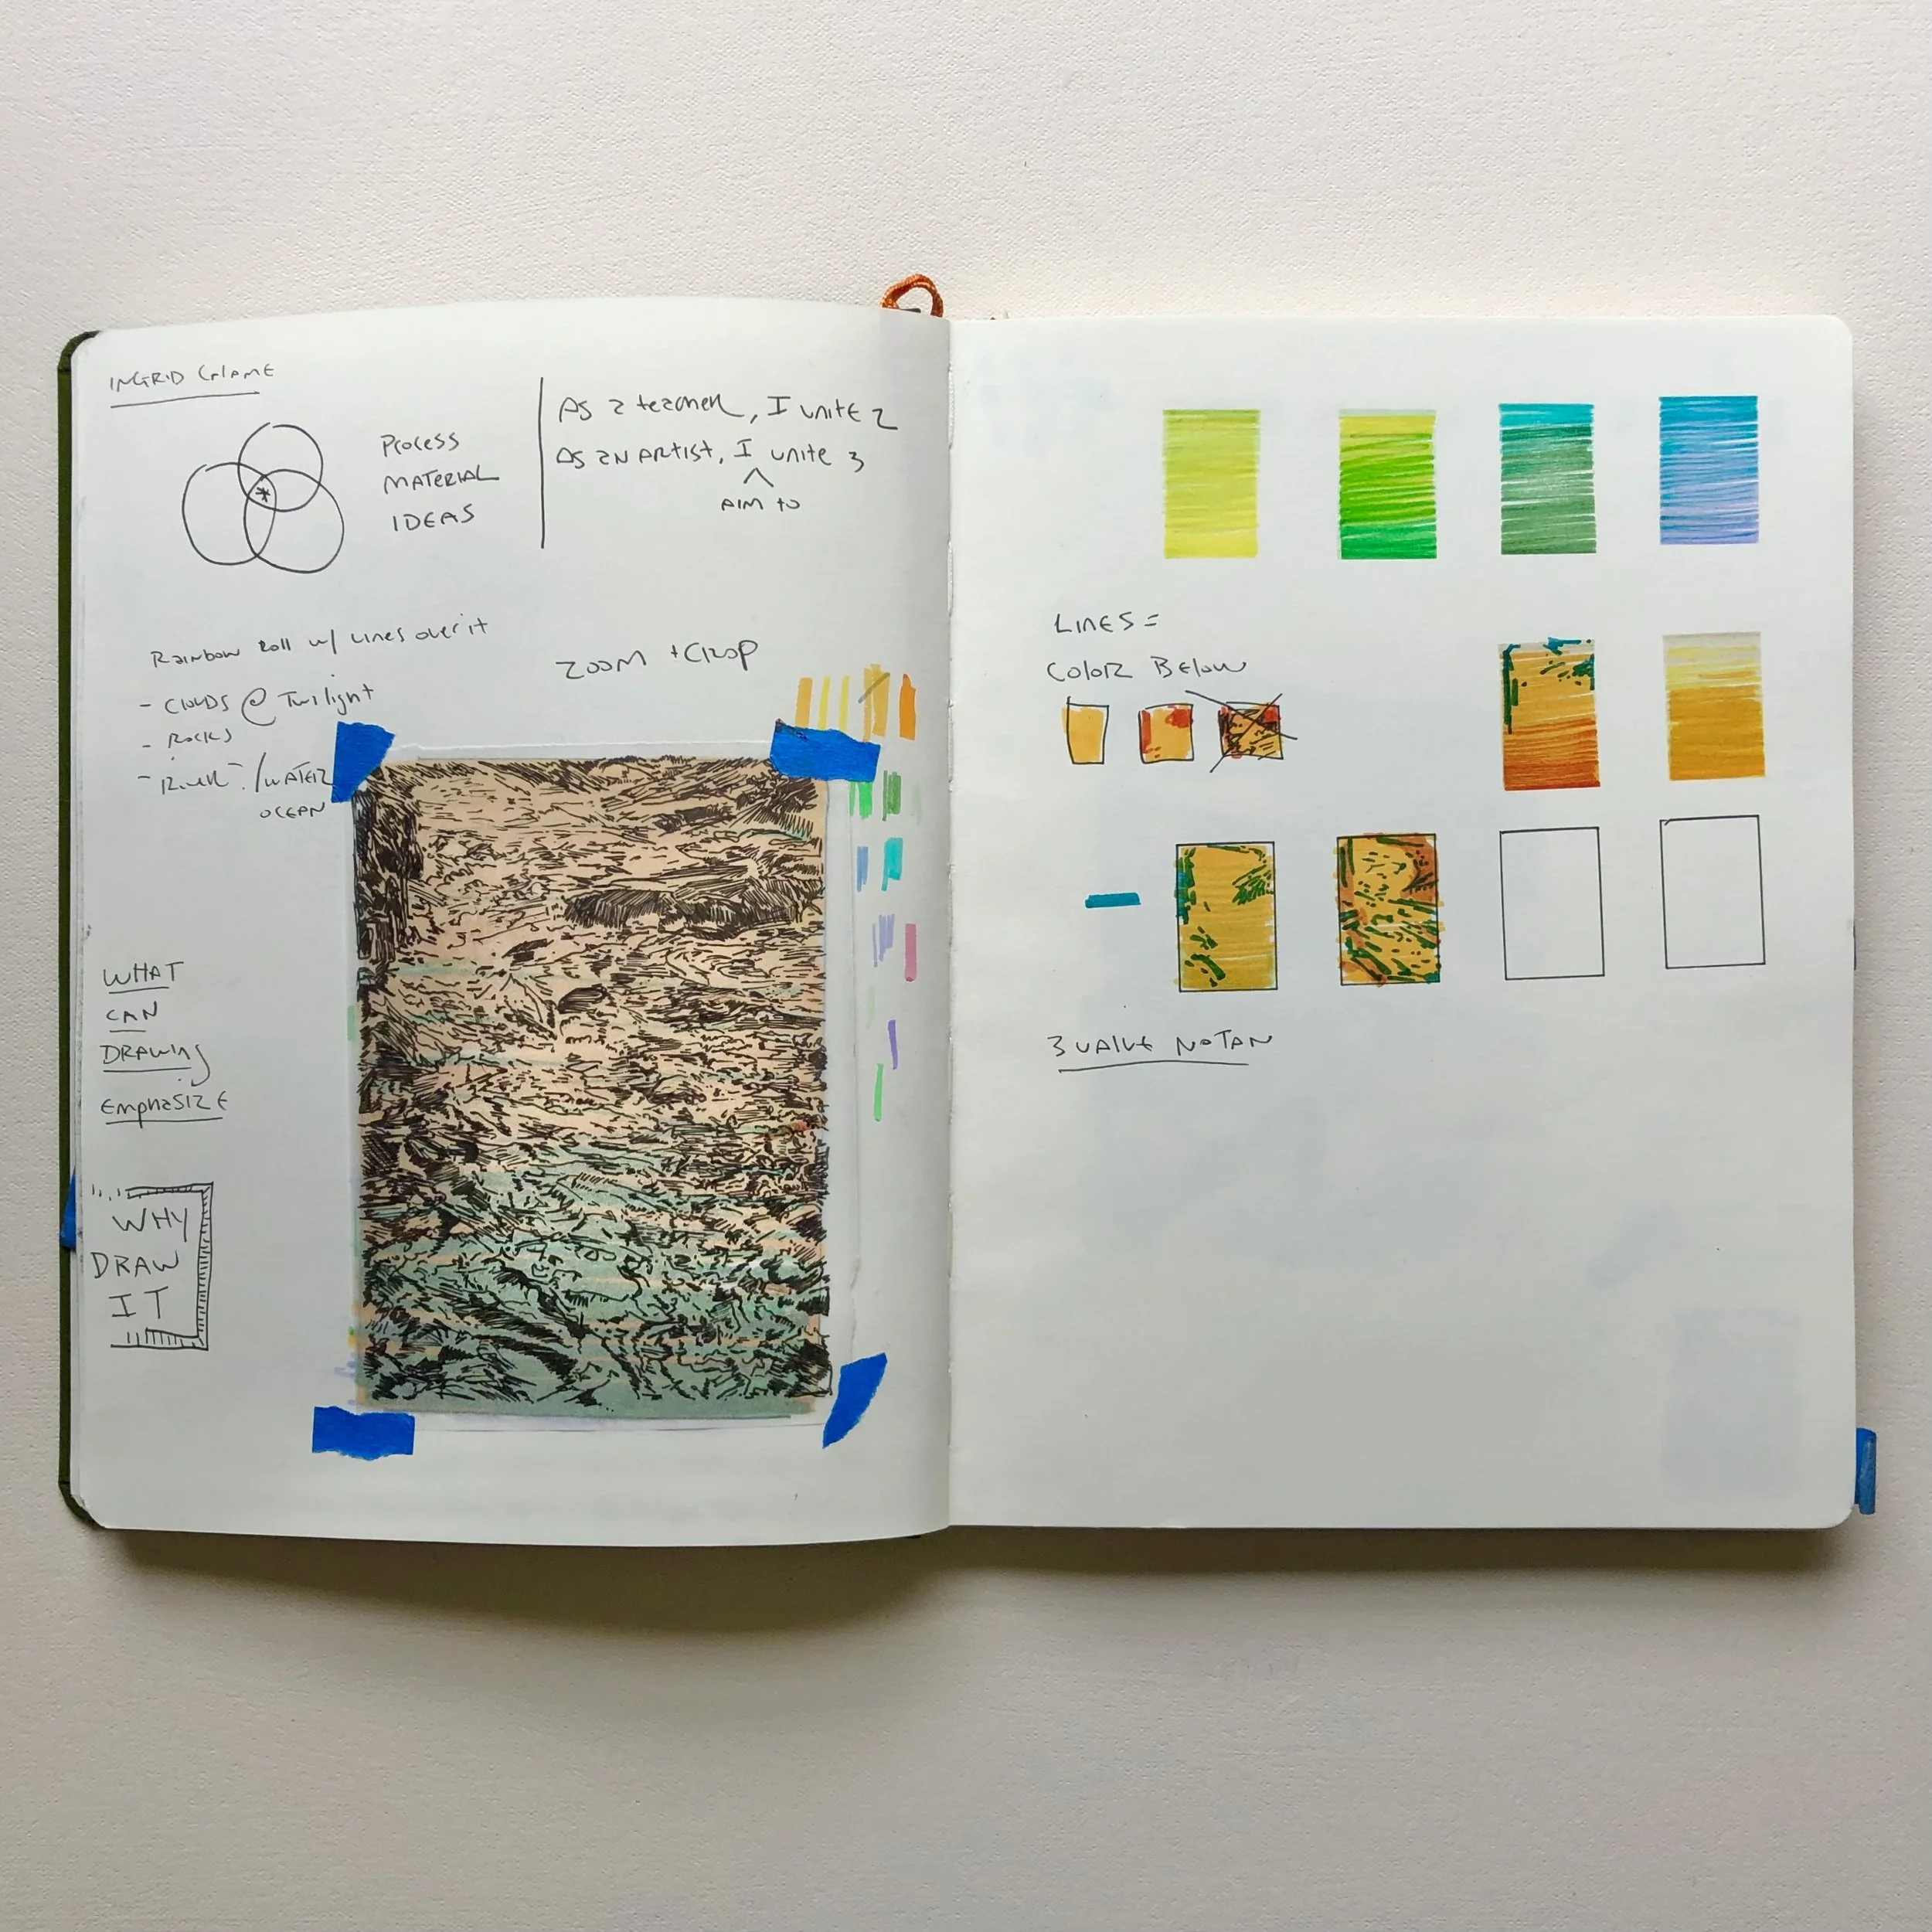 INGRID CALAME
PROCESS
MATERIAL
IDEAS
AS A teacher, I unite 2
AS AN ARTIST, I unite 3
^
AIM to
Rainbow Roll w/ lines over it
- CLOUDS @ Twilight
- Rocks
- River /WATER
OCEAN
ZOOM + CROP
WHAT
CAN
DRAWING
EMPHASIZE
WHY
DRAW
IT
LINES =
COLOR BELOW
3 VALUE NOTAN